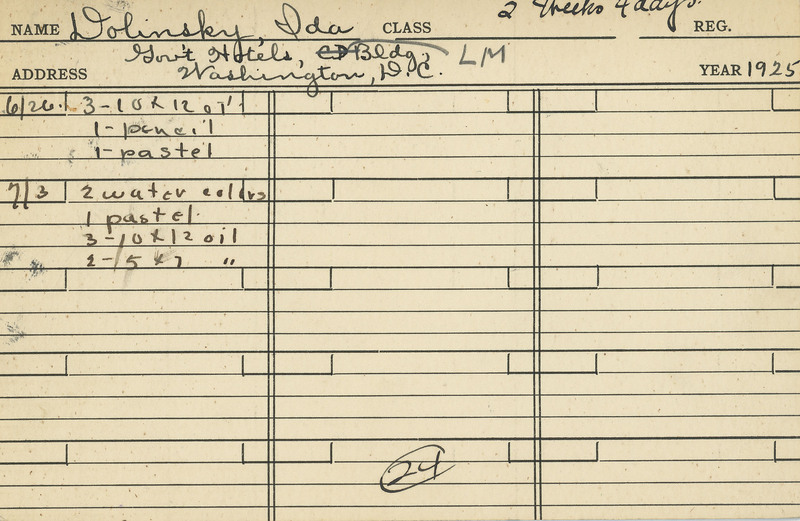 2 Weeks 4 days.
NAME Dolinsky, Ida CLASS REG.
Gov't Hotels, CD Bldg, LM
ADDRESS Washington, D.C. YEAR 1925
6/26. 3-10x12 oil
1-pencil
1-pastel
7/3 2 water colors
1 pastel.
3-10x12 oil
2-5x7 "
24